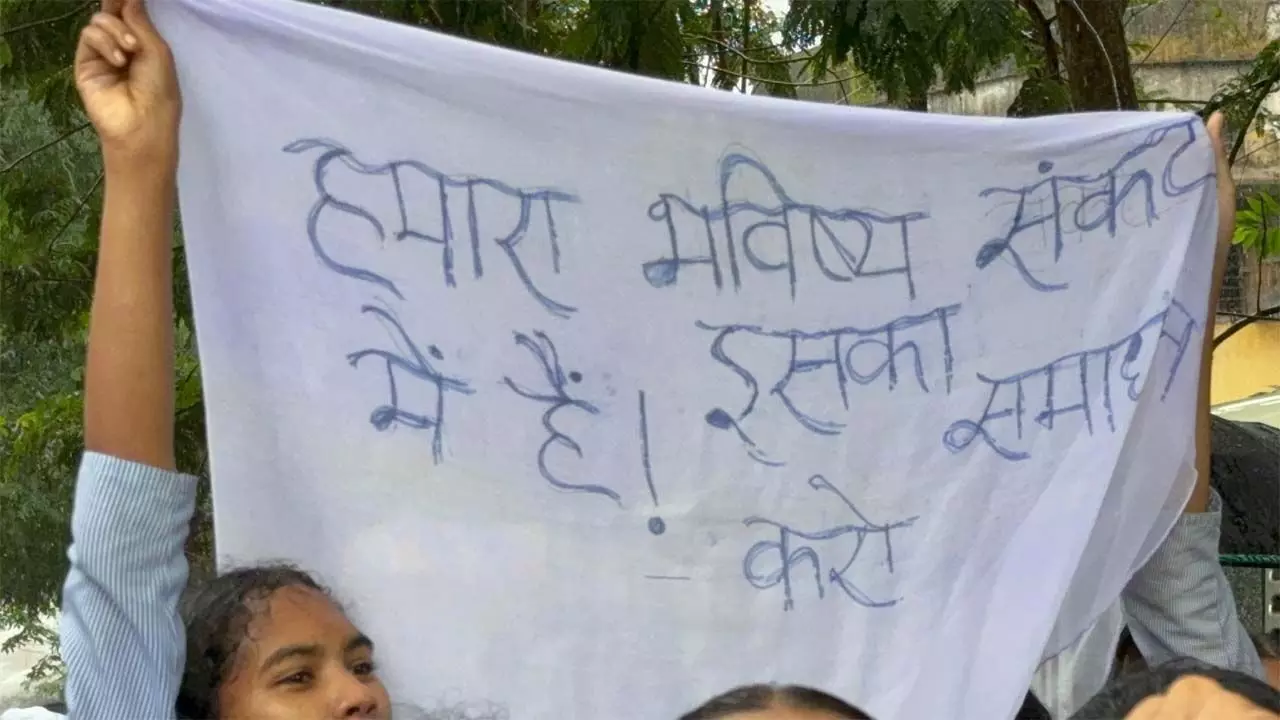 हमारा भविष्य संकट
में हैं! इसका समाधान
- करो